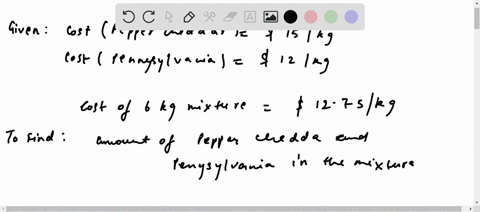 Given: Cost (Pepper cheddar) = $ 15/kg
Cost (Pennsylvania) = $ 12/kg
Cost of 6 kg mixture = $ 12.75/kg
To find: amount of Pepper chedda and
Penysylvania in the mixture